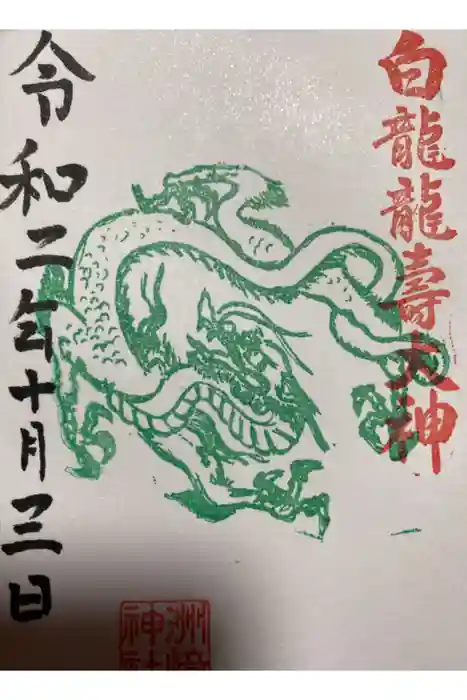 白龍龍壽大神
洲崎
神社
令和二年十月三日